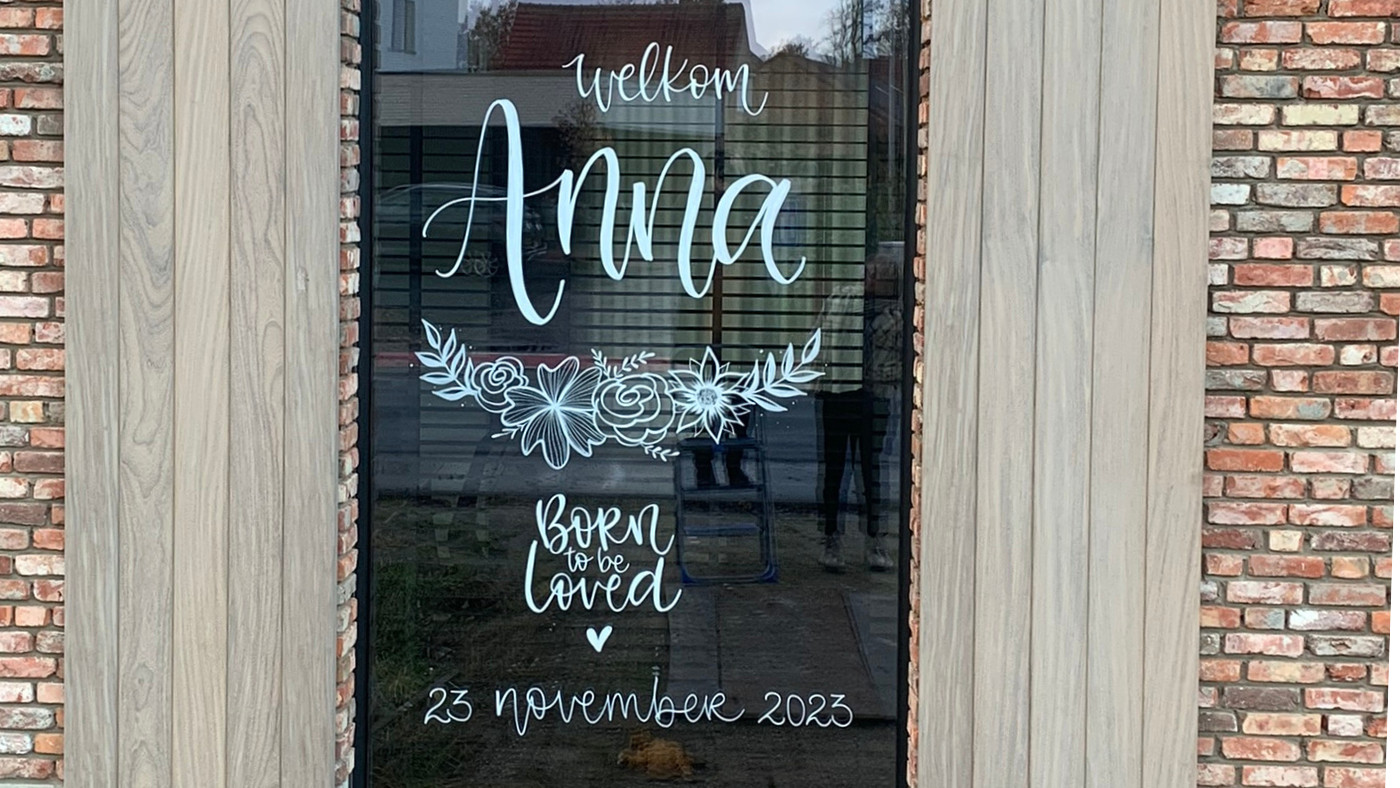 welkom
Anna
BORN
to be
loved
23 november 2023